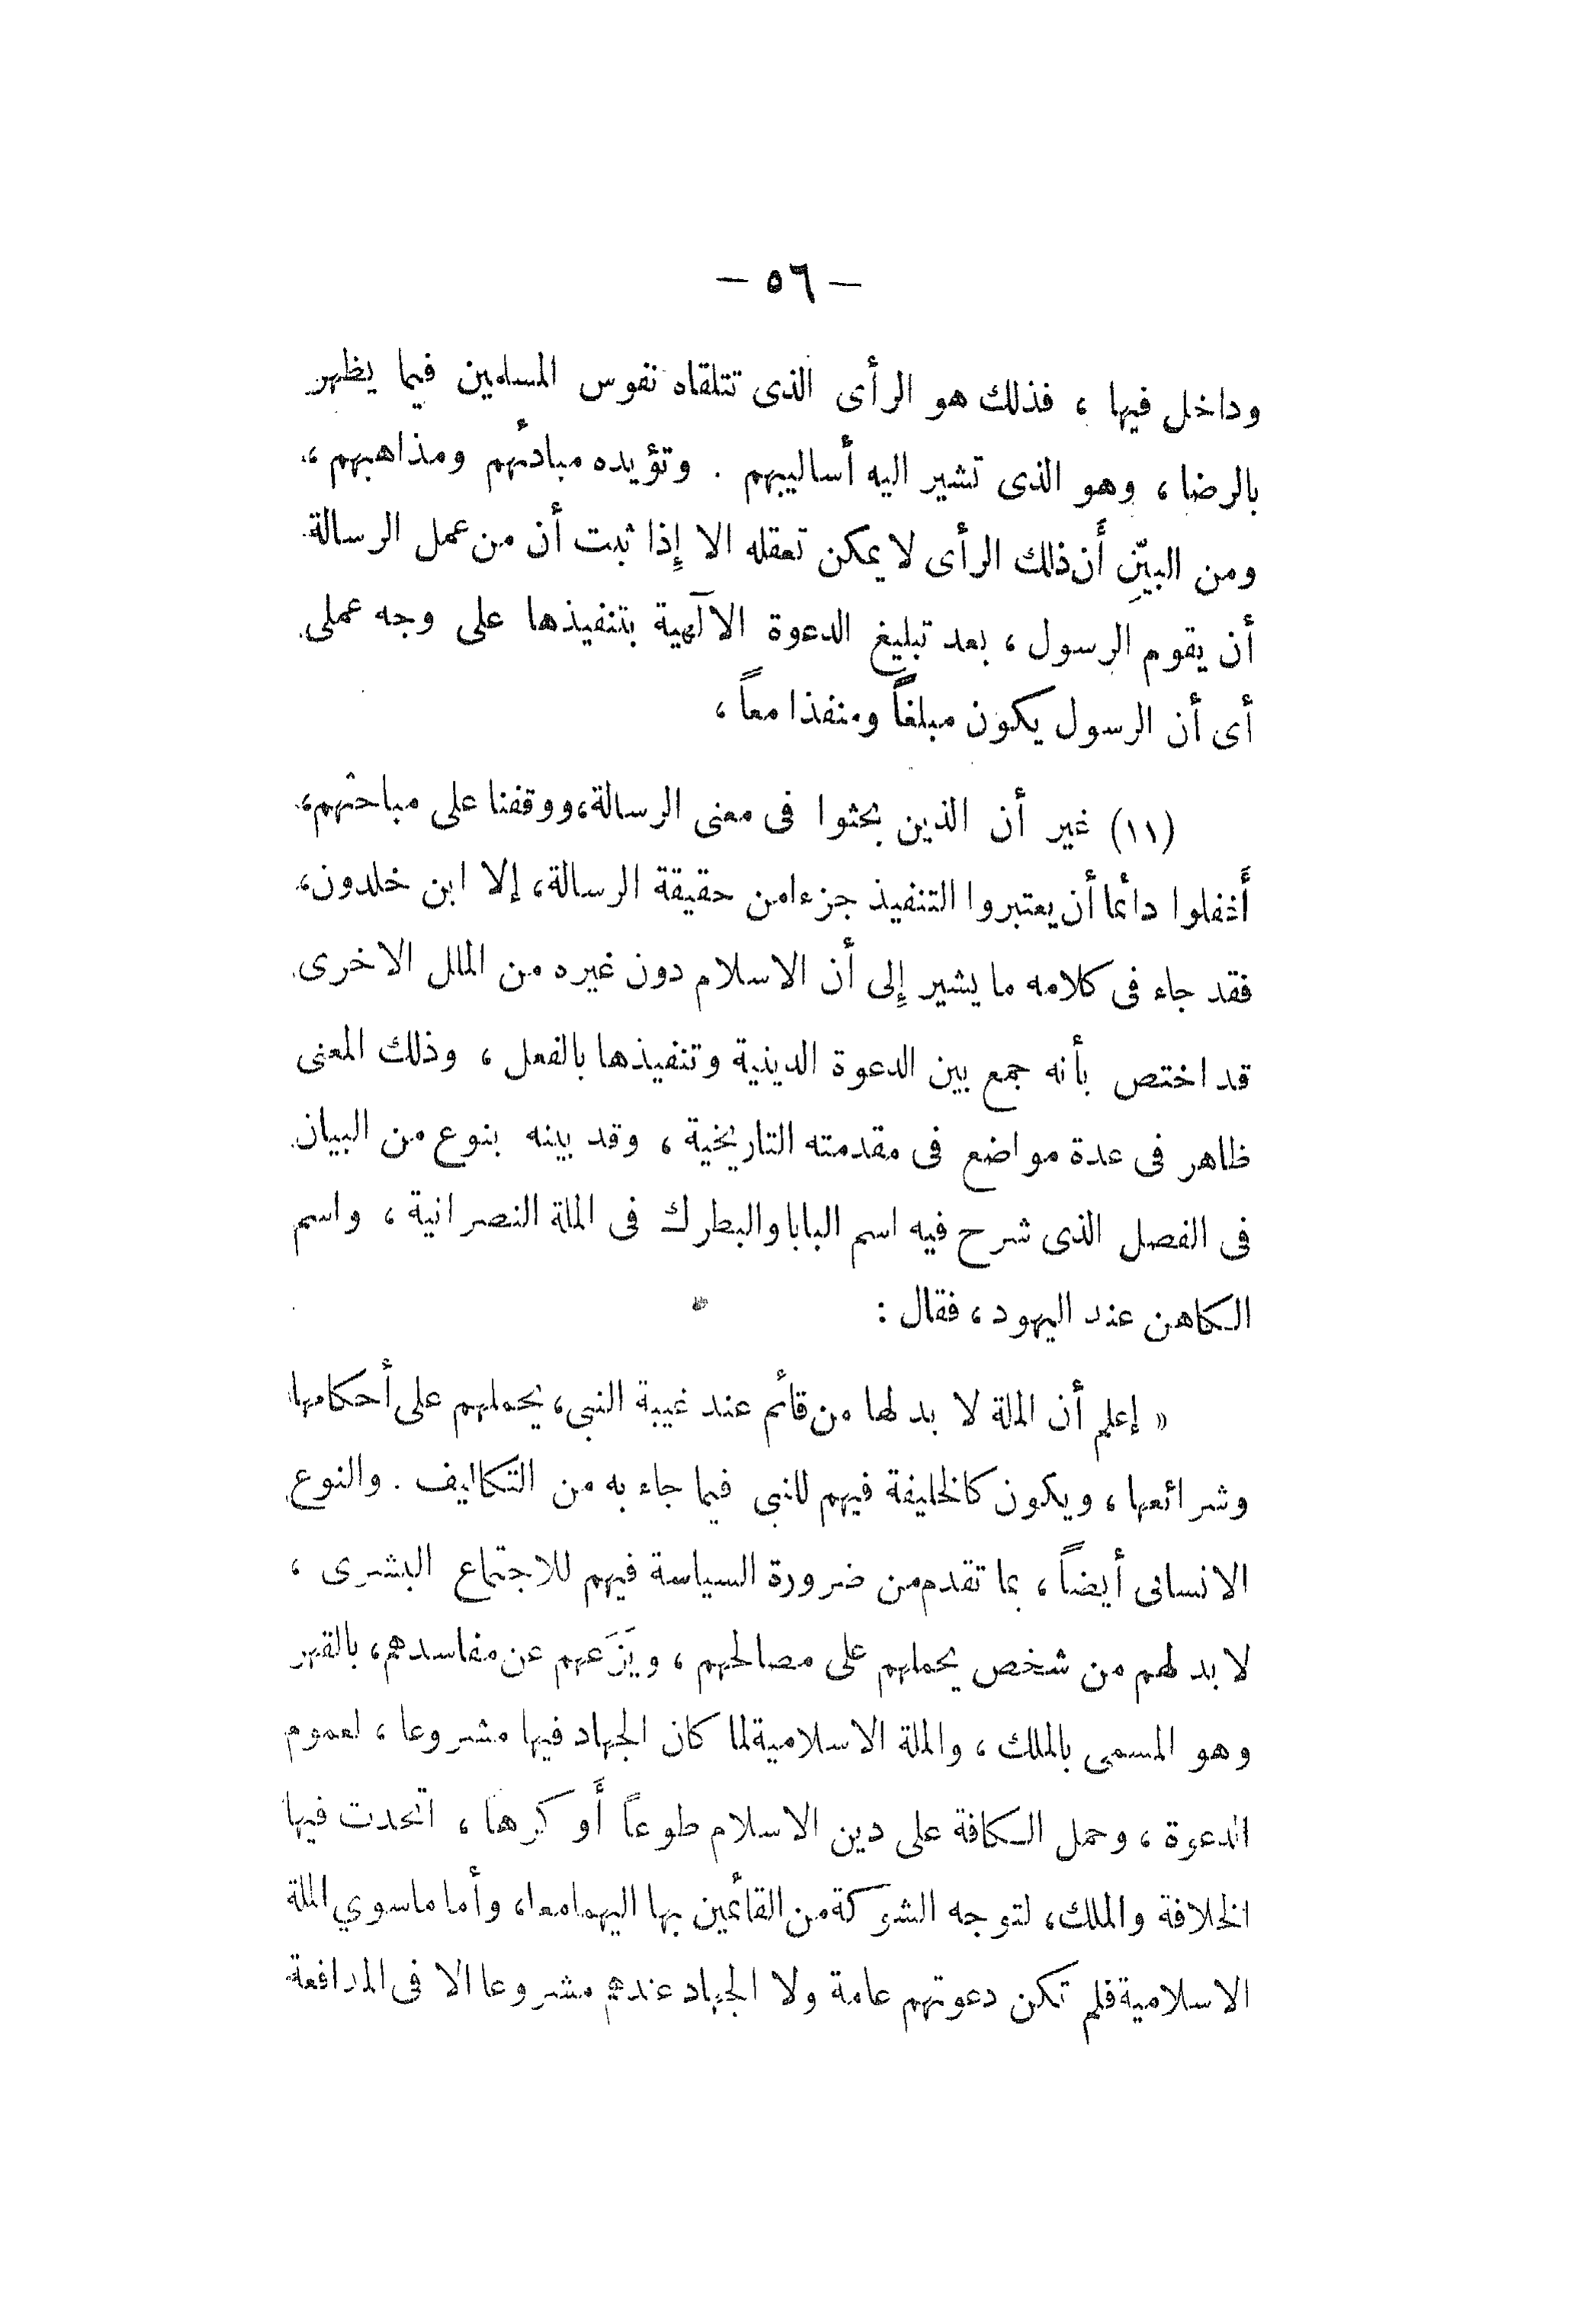 — ٥٦ —
وداخل فيها ، فذلك هو الرأى الذى تتلقاه نفوس المسلمين فيما يظهر
بالرضا ، وهو الذى تشير اليه أساليبهم . وتؤيده مبادئهم ومذاهبهم ،
ومن البيّنِ أَن ذلك الرأى لا يمكن تعقله الا إِذا ثبت أن من عمل الرسالة
أن يقوم الرسول ، بعد تبليغ الدعوة الآلهية بتنفيذها على وجه عملى
أى أن الرسول يكون مبلغاً ومنفذا معاً ،
(١١) غير أن الذين بحثوا فى معنى الرسالة ، ووقفنا على مباحثهم ،
أَغفلوا دائما أن يعتبروا التنفيذ جزءا من حقيقة الرسالة ، إلا ابن خلدون ،
فقد جاء فى كلامه ما يشير إِلى أن الاسلام دون غيره من الملل الاخرى
قد اختص بأنه جمع بين الدعوة الدينية وتنفيذها بالفعل ، وذلك المعنى
ظاهر فى عدة مواضع فى مقدمته التاريخية ، وقد بينه بنوع من البيان
فى الفصل الذى شرح فيه اسم البابا والبطرك فى الملة النصرانية ، واسم
الكاهن عند اليهود ، فقال :
« إعلم أن الملة لا بد لها من قائم عند غيبة النبى ، يحملهم على أحكامها
وشرائعها ، ويكون كالخليفة فيهم للنبى فيما جاء به من التكاليف . والنوع
الانسانى أيضاً ، بما تقدم من ضرورة السياسة فيهم للاجتماع البشرى ،
لا بد لهم من شخص يحملهم على مصالحهم ، ويَزَعهم عن مفاسدهم ، بالقهر
وهو المسمى بالملك ، والملة الاسلامية لما كان الجهاد فيها مشروعا ، لعموم
الدعوة ، وحمل الكافة على دين الاسلام طوعاً أَو كرها ، اتحدت فيها
الخلافة والملك ، لتوجه الشوكة من القائمين بها اليهما معا ، وأما ما سوي الملة
الاسلامية فلم تكن دعوتهم عامة ولا الجهاد عندهم مشروعا الا فى المدافعة